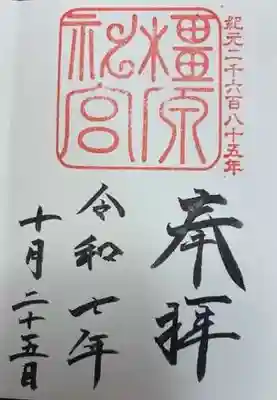 紀元二千六百八十五年
橿原
神宮
奉拝
令和七年
十月二十五日